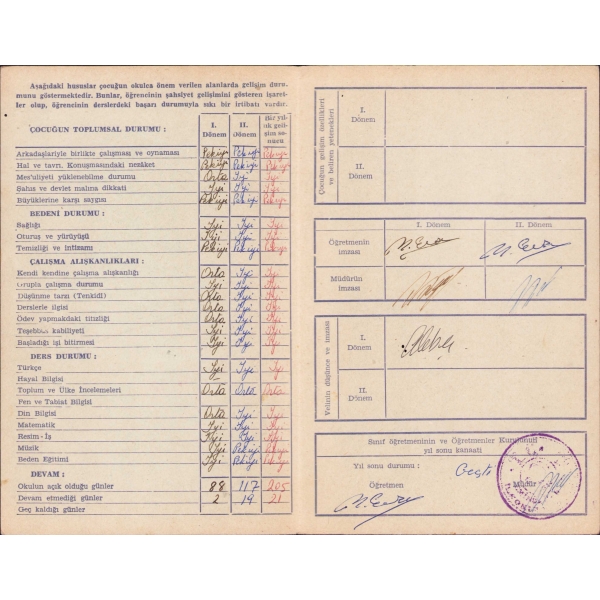 Aşağıdaki hususlar çocuğun okulca önem verilen alanlarda gelişim duru-
munu göstermektedir. Bunlar, öğrencinin şahsiyet gelişimini gösteren işaret-
ler olup, öğrencinin derslerdeki başarı durumuyla sıkı bir irtibatı vardır.
ÇOCUĞUN TOPLUMSAL DURUMU : I. Dönem II. Dönem Bir yıl-
lık geli-
şim so-
nucu
Arkadaşlariyle birlikte çalışması ve oynaması Pekiyi Pekiyi Pekiyi
Hal ve tavrı. Konuşmasındaki nezâket Pekiyi Pekiyi Pekiyi
Mes'uliyeti yüklenebilme durumu Orta İyi İyi
Şahıs ve devlet malına dikkati İyi İyi İyi
Büyüklerine karşı saygısı Pekiyi Pekiyi Pekiyi
BEDENİ DURUMU :
Sağlığı İyi İyi İyi
Oturuş ve yürüyüşü İyi İyi İyi
Temizliği ve intizamı Pekiyi Pekiyi Pekiyi
ÇALIŞMA ALIŞKANLIKLARI :
Kendi kendine çalışma alışkanlığı Orta İyi İyi
Grupla çalışma durumu İyi İyi İyi
Düşünme tarzı (Tenkidi) Orta İyi İyi
Derslerle ilgisi Orta İyi İyi
Ödev yapmakdaki titizliği Orta İyi İyi
Teşebbüs kabiliyeti İyi İyi İyi
Başladığı işi bitirmesi İyi İyi İyi
DERS DURUMU :
Türkçe İyi İyi İyi
Hayat Bilgisi
Toplum ve Ülke İncelemeleri Orta Orta Orta
Fen ve Tabiat Bilgisi
Din Bilgisi Orta İyi İyi
Matematik İyi İyi İyi
Resim-İş İyi İyi İyi
Müzik İyi Pekiyi Pekiyi
Beden Eğitimi İyi Pekiyi Pekiyi
DEVAM :
Okulun açık olduğu günler 88 117 205
Devam etmediği günler 2 19 21
Geç kaldığı günler
Çocuğun gelişim özellikleri
ve beliren yetenekleri
I.
Dönem
II.
Dönem
I. Dönem II. Dönem
Öğretmenin
imzası
Müdürün
imzası
Velinin düşünce ve imzası
I.
Dönem
II.
Dönem
Sınıf öğretmeninin ve Öğretmenler Kurulunun
yıl sonu kanaati
Yıl sonu durumu : Geçti
Öğretmen Müdür